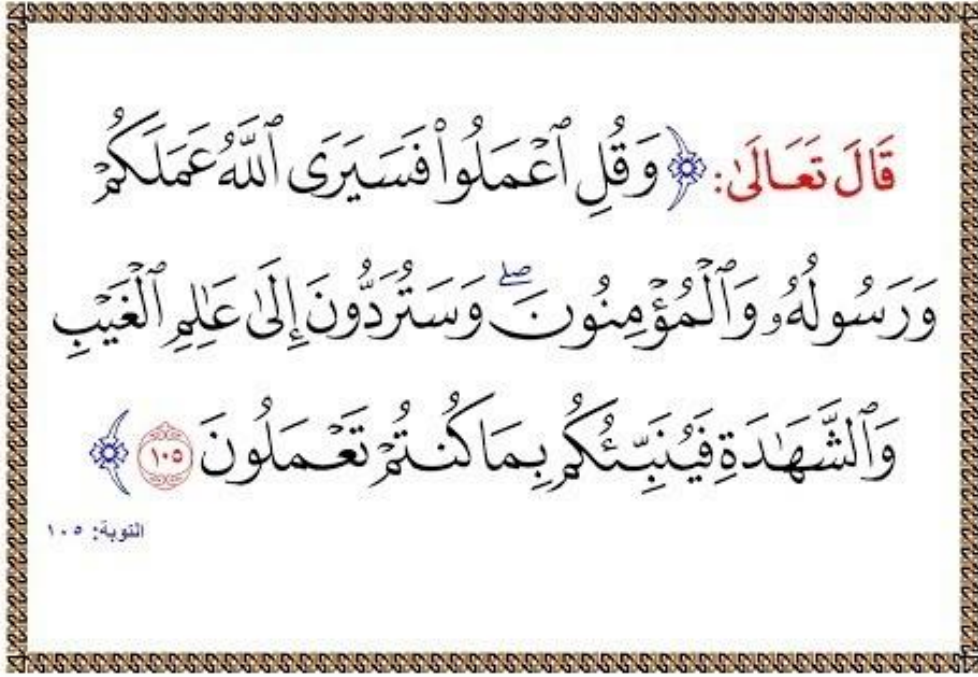 قَالَ تَعَالَىٰ: ﴿ وَقُلِ ٱعۡمَلُواْ فَسَيَرَى ٱللَّهُ عَمَلَكُمۡ
وَرَسُولُهُۥ وَٱلۡمُؤۡمِنُونَۖ وَسَتُرَدُّونَ إِلَىٰ عَٰلِمِ ٱلۡغَيۡبِ
وَٱلشَّهَٰدَةِ فَيُنَبِّئُكُم بِمَا كُنتُمۡ تَعۡمَلُونَ ١٠٥ ﴾
التوبة: ١٠٥